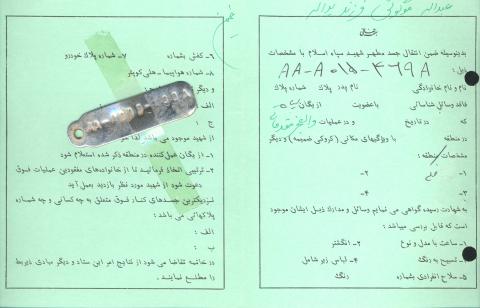 عبداله
فرزند یداله
بسمه تعالی
بدینوسیله ضمن انتقال جسد مطهر شهید سپاه اسلام با مشخصات
ذیل:
AA-A ۰۱۵-۴۶۹۸
نام و نام خانوادگی نام پدر پلاک شماره پلاک
فاقد وسائل شناسائی با عضویت از یگان
که در تاریخ و در عملیات والفجر مقدماتی
در منطقه با ویژگیهای مکانی (کروکی ضمیمه) و دیگر
مشخصات منطقه:
۱- ۲-
۳- ۴-
به شهادت رسیده گواهی می نمایم وسائل و مدارک ذیل ایشان موجود
است که قابل بررسی میباشد:
۱- ساعت با مدل و نوع ۲- انگشتر
۳- تسبیح به رنگ ۴- لباس زیر شامل
۵- سلاح انفرادی بشماره رنگ
۶- کفش بشماره ۷- شماره پلاک خودرو
۸- شماره هواپیما - هلی کوپتر
و دیگر
الف
ج:
از شهید موجود می باشد لذا
۱- از یگان عمل کننده در منطقه ذکر شده استعلام شود
۲- ترتیبی اتخاذ فرمائید تا از خانواده‌های مفقودین عملیات فوق
دعوت شود از شهید مورد نظر بازدید بعمل آید
نزدیکترین جسدهای کنار فوق متعلق به چه کسانی و چه شماره
پلاکهائی می باشد:
الف:
ب:
در خاتمه تقاضا می شود از نتایج امر این ستاد و دیگر مبادی ذیربط
را مطلع نمایند.